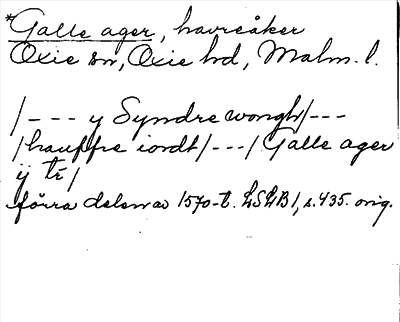 *Galle ager, havreåker
Oxie sn, Oxie hd, Malm. l.
/--- y Syndre wongh/---
/hauffre iordt/---/Galle ager
ij tr/
förra delen av 1570-t. LSLB 1, s. 435. orig.